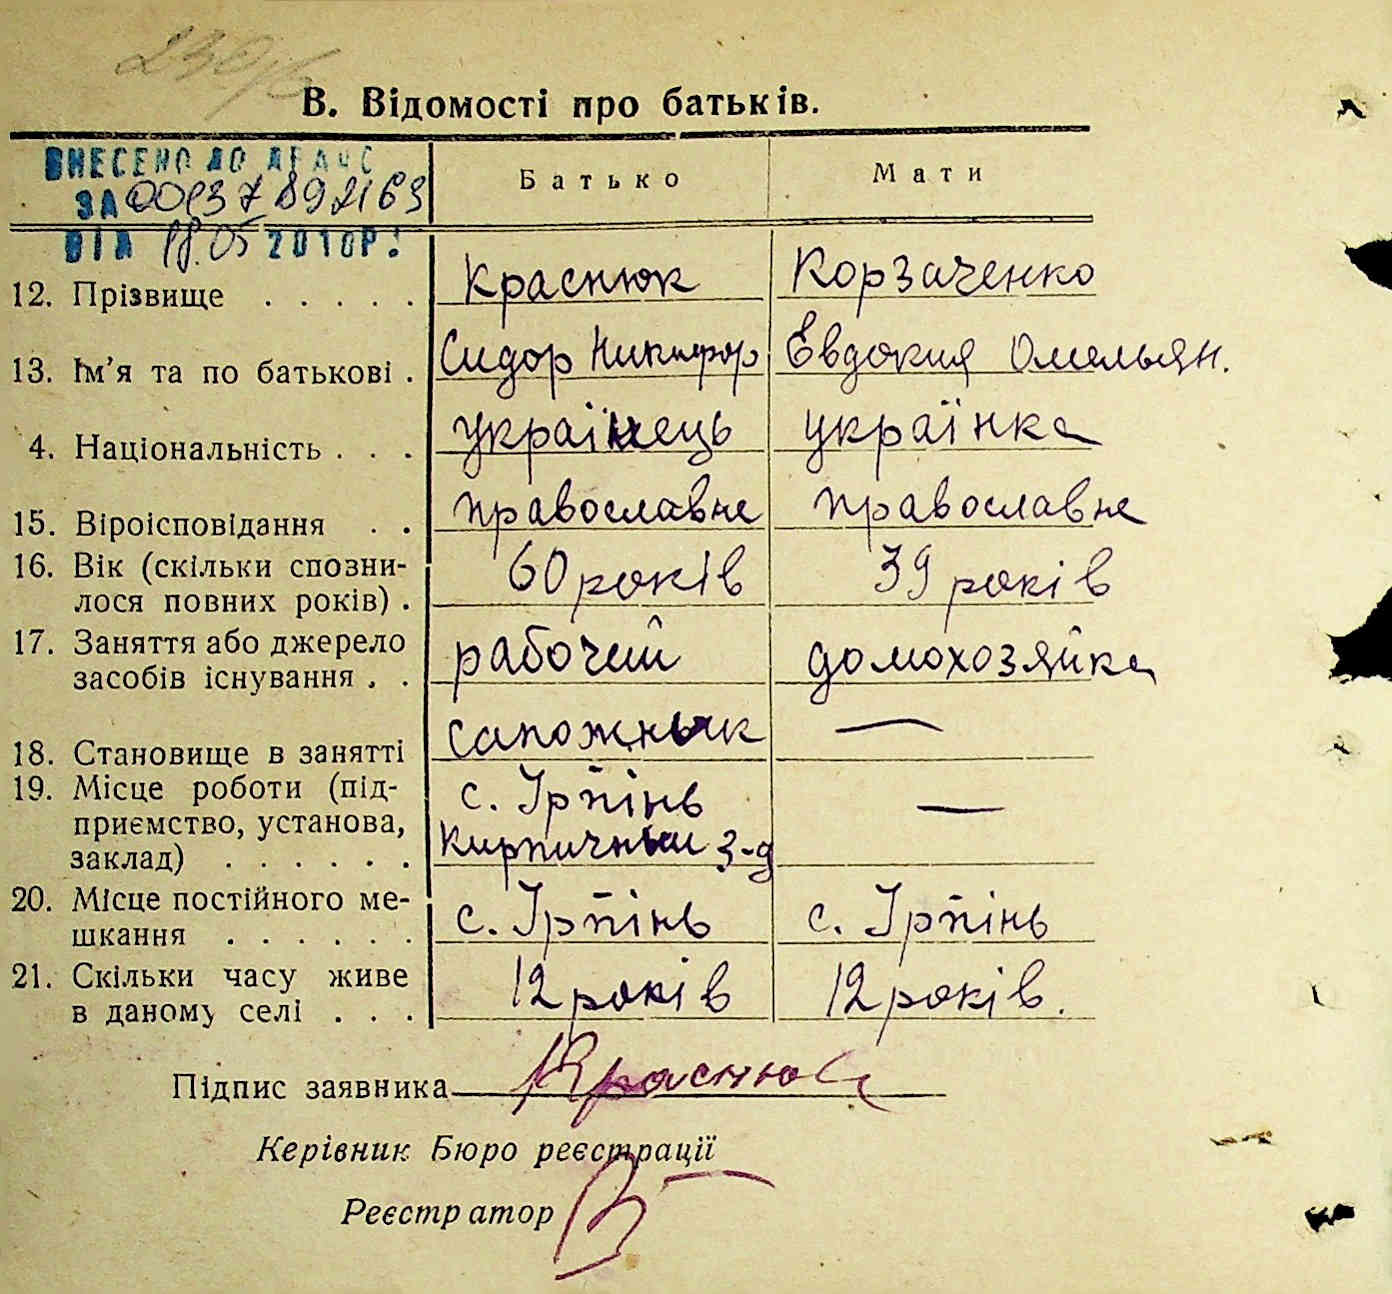 В. Відомості про батьків.
ВНЕСЕНО ДО ДРАЦС
ЗА 00137892163
ВІД 18.05 2010Р.
Батько Мати
12. Прізвище . . . . . Краснюк Корзаченко
13. Ім’я та по батькові . Сидор Никифор Евдокия Омельян.
4. Національність . . . українець українка
15. Віроісповідання . . православне православне
16. Вік (скільки спозни-
лося повних років) . 60 років 39 років
17. Заняття або джерело
засобів існування . . рабочий домохозяйка
18. Становище в занятті сапожнык —
19. Місце роботи (під-
приємство, установа,
заклад) . . . . . . с. Ірпінь —
Кирпичный з-д
20. Місце постійного ме-
шкання . . . . . . с. Ірпінь с. Ірпінь
21. Скільки часу живе
в даному селі . . . 12 років 12 років.
Підпис заявника Краснюк
Керівник Бюро реєстрації
Реєстратор